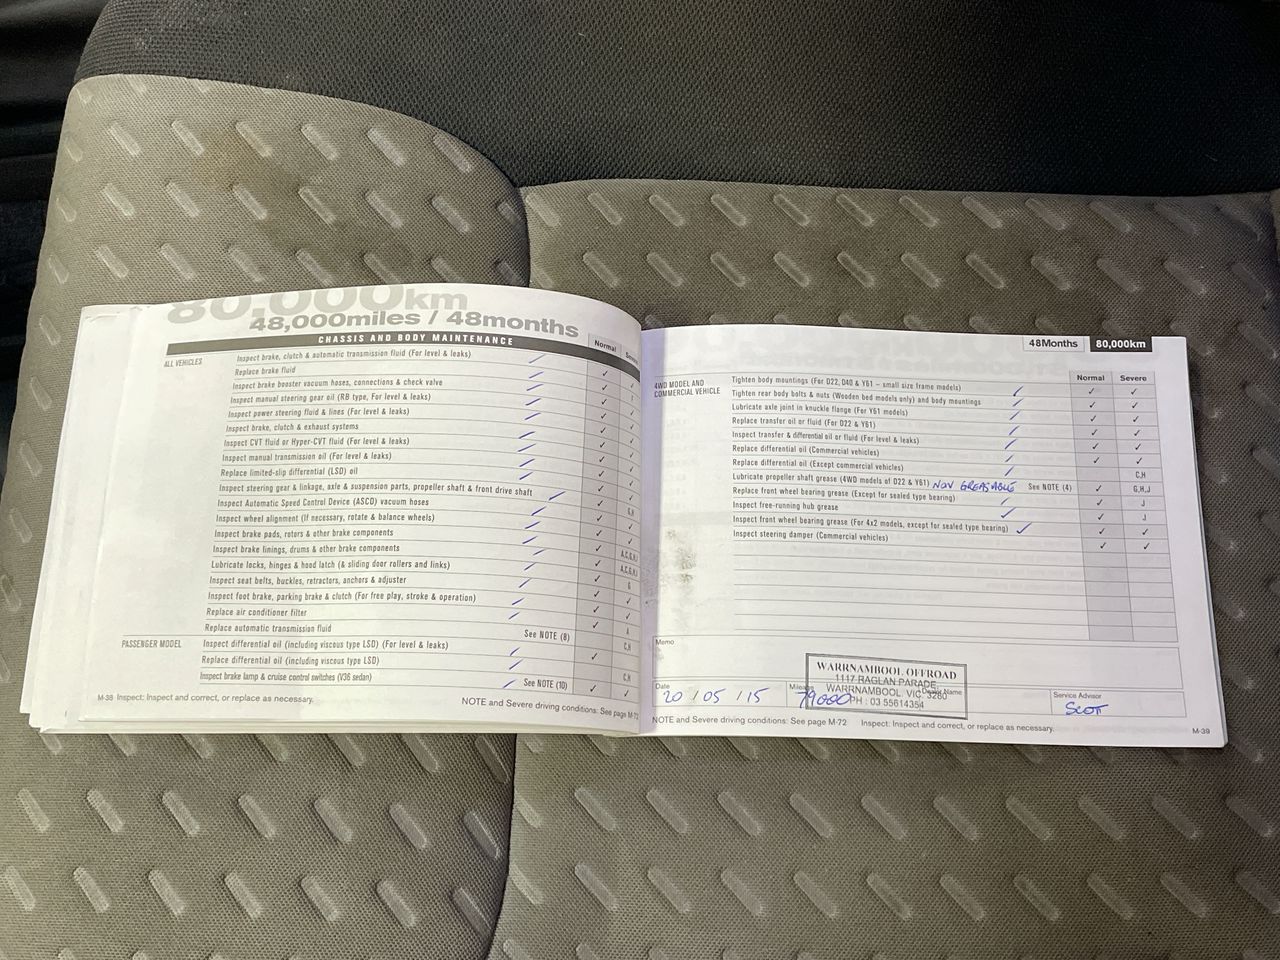 80,000km
48,000miles / 48months
CHASSIS AND BODY MAINTENANCE
Normal
ALL VEHICLES
Inspect brake, clutch & automatic transmission fluid (For level & leaks)
Replace brake fluid
Inspect brake booster vacuum hoses, connections & check valve
Inspect manual steering gear oil (RB type, For level & leaks)
Inspect power steering fluid & lines (For level & leaks)
Inspect brake, clutch & exhaust systems
Inspect CVT fluid or Hyper-CVT fluid (For level & leaks)
Inspect manual transmission oil (For level & leaks)
Replace limited-slip differential (LSD) oil
G,H
Inspect steering gear & linkage, axle & suspension parts, propeller shaft & front drive shaft
Inspect Automatic Speed Control Device (ASCD) vacuum hoses
Inspect wheel alignment (If necessary, rotate & balance wheels)
Inspect brake pads, rotors & other brake components
A,C,G,H,I
Inspect brake linings, drums & other brake components
A,C,G,H,I
Lubricate locks, hinges & hood latch (& sliding door rollers and links)
G
Inspect seat belts, buckles, retractors, anchors & adjuster
Inspect foot brake, parking brake & clutch (For free play, stroke & operation)
Replace air conditioner filter
A
Replace automatic transmission fluid
See NOTE (8)
C,H
PASSENGER MODEL
Inspect differential oil (including viscous type LSD) (For level & leaks)
Replace differential oil (including viscous type LSD)
C,H
Inspect brake lamp & cruise control switches (V36 sedan)
See NOTE (10)
M-38 Inspect: Inspect and correct, or replace as necessary.
NOTE and Severe driving conditions: See page M-72
48Months
80,000km
Normal
Severe
4WD MODEL AND
COMMERCIAL VEHICLE
Tighten body mountings (For D22, D40 & Y61 – small size frame models)
Tighten rear body bolts & nuts (Wooden bed models only) and body mountings
Lubricate axle joint in knuckle flange (For Y61 models)
Replace transfer oil or fluid (For D22 & Y61)
Inspect transfer & differential oil or fluid (For level & leaks)
Replace differential oil (Commercial vehicles)
Replace differential oil (Except commercial vehicles)
C,H
Lubricate propeller shaft grease (4WD models of D22 & Y61) NON GREASABLE
See NOTE (4)
G,H,J
Replace front wheel bearing grease (Except for sealed type bearing)
J
Inspect free-running hub grease
J
Inspect front wheel bearing grease (For 4x2 models, except for sealed type bearing)
Inspect steering damper (Commercial vehicles)
Memo
WARRNAMBOOL OFFROAD
1117 RAGLAN PARADE
WARRNAMBOOL VIC 3280
PH : 03 55614354
Date
20 / 05 / 15
79000
Name
Service Advisor
SCOT
NOTE and Severe driving conditions: See page M-72
Inspect: Inspect and correct, or replace as necessary.
M-39